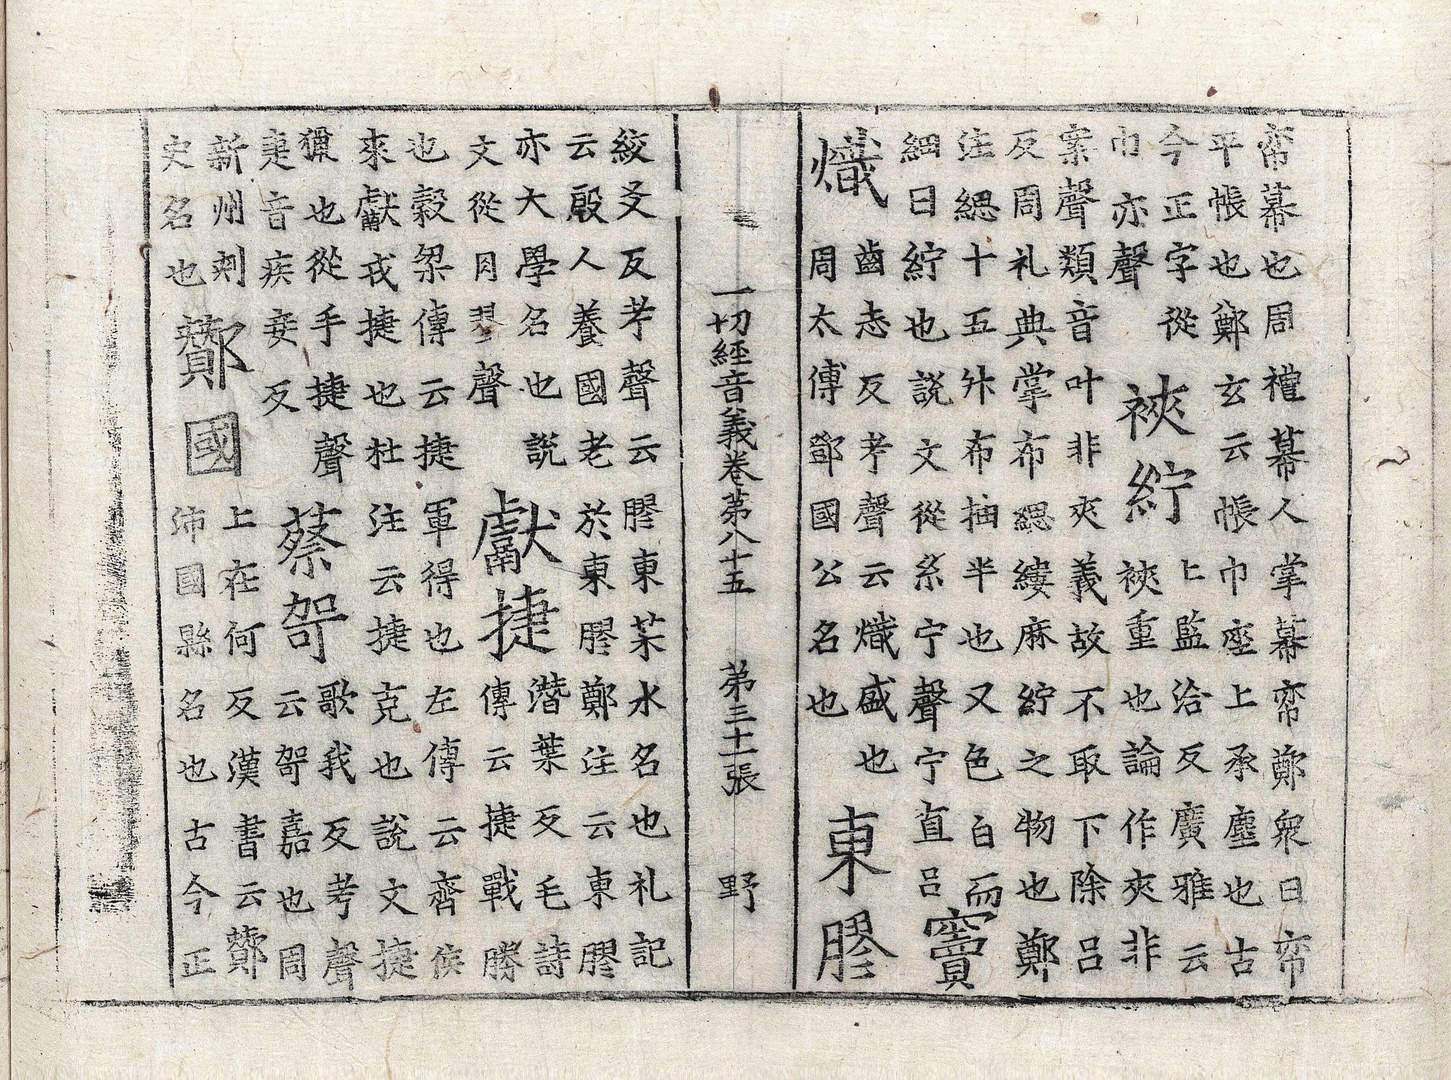 帟幕也周禮幕人掌幕帟鄭衆曰帟
平帳也鄭玄云帳巾座上承塵也古
今正字從
巾亦聲
裌紵
上監洽反廣雅云
裌重也論作夾非
案聲類音叶非夾義故不取下除吕
反周礼典掌布緦縷麻紵之物也鄭
注緦十五升布抽半也又色白而
細曰紵也說文從糸宁聲宁直吕
竇
熾
齒志反考聲云熾盛也
周太傅鄧國公名也
東膠
一切經音義卷第八十五 第三十一張 野
絞爻反考聲云膠東萊水名也礼記
云殷人養國老於東膠鄭注云東膠
亦大學名也說
文從月翏聲
獻捷
潛葉反毛詩
傳云捷戰勝
也穀梁傳云捷軍得也左傳云齊侯
來獻戎捷也杜注云捷克也說文捷
獵也從手捷聲
疌音疾妾反
蔡哿
歌我反考聲
云哿嘉也周
新州刺
史名也
酇國
上在何反漢書云酇
沛國縣名也古今正